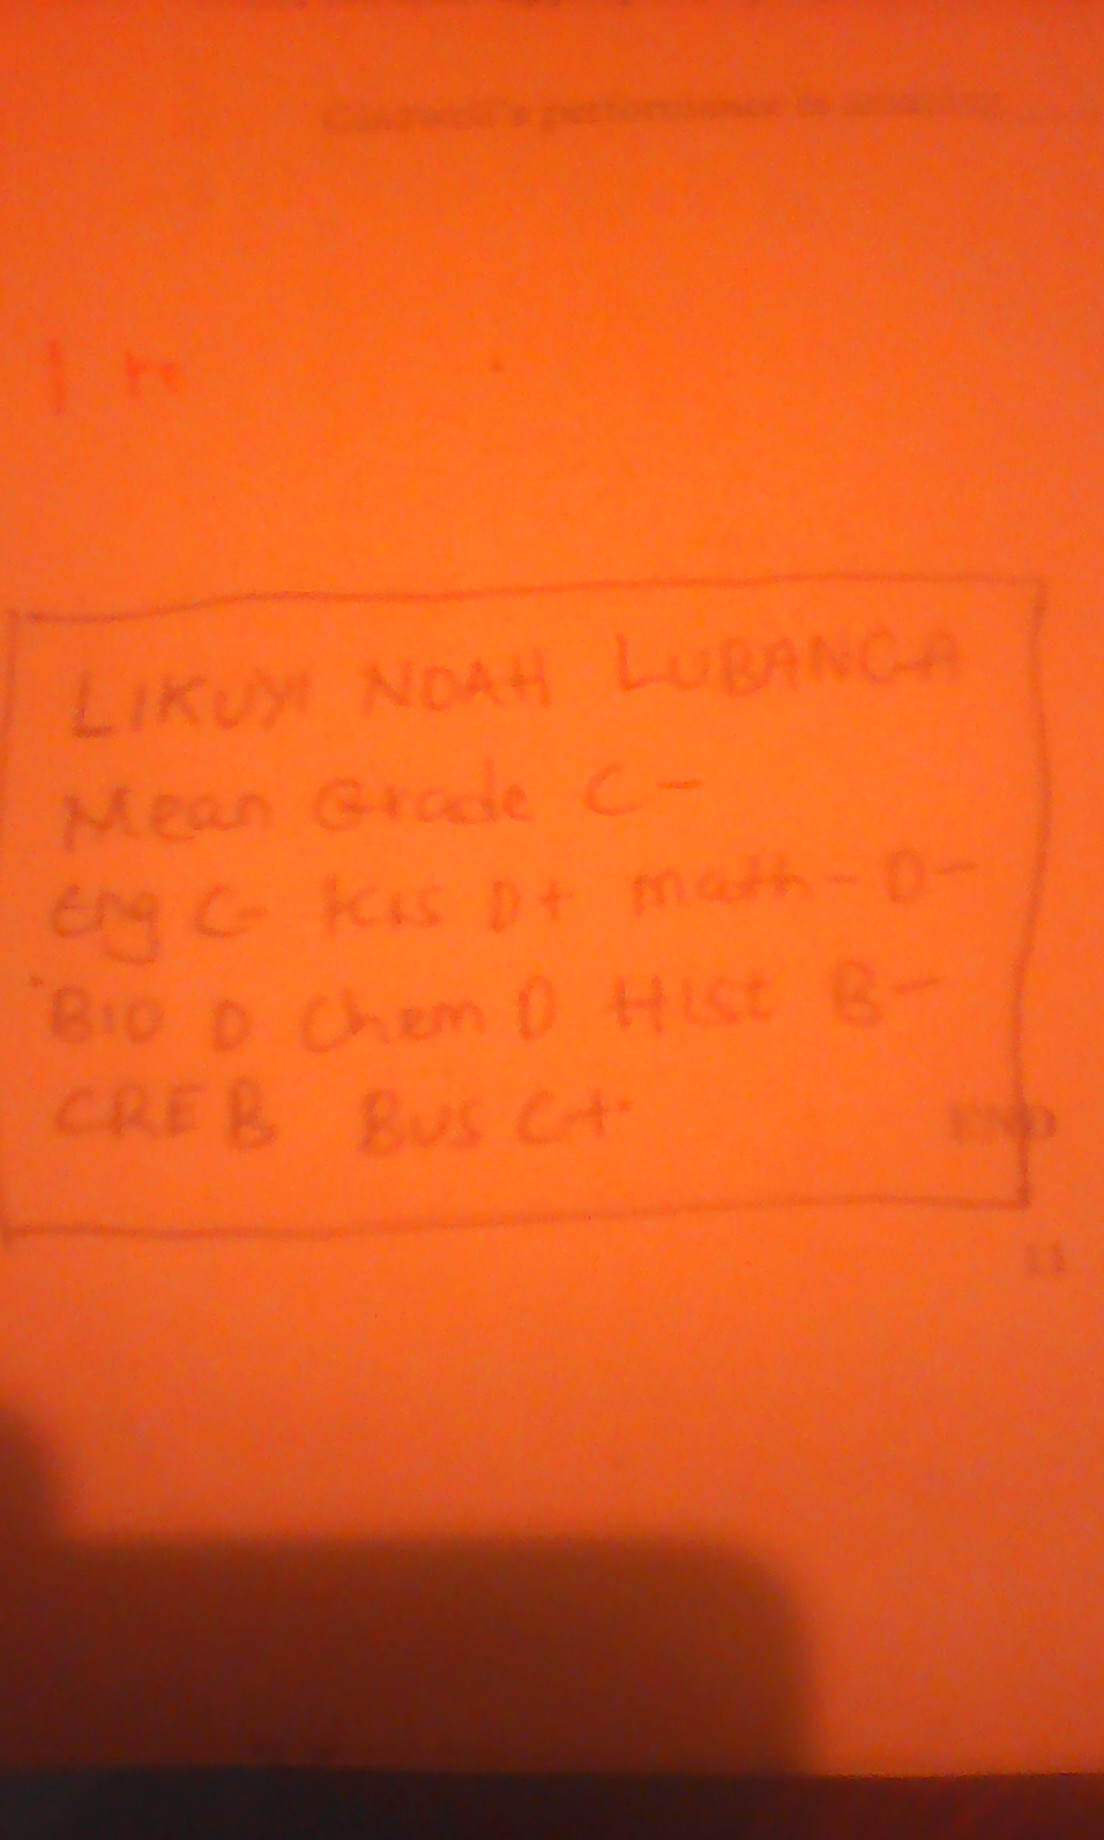 Gladwell's performance is amazing
I re
LIKUYI NOAH LUBANGA
Mean Grade C-
Eng C- Kis D+ math- D-
BIO D Chem D Hist B-
CRE B Bus C+
END
11